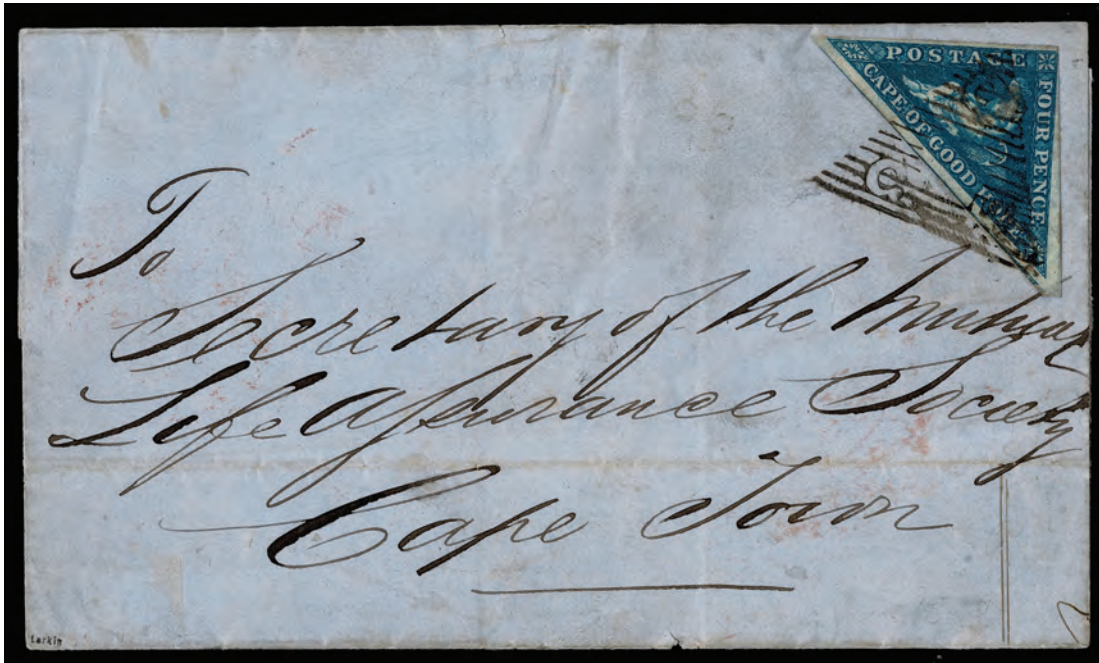 POSTAGE
FOUR PENCE
CAPE OF GOOD HOPE
C
To
Secretary of the Mutual
Life Assurance Society
Cape Town
Larkin